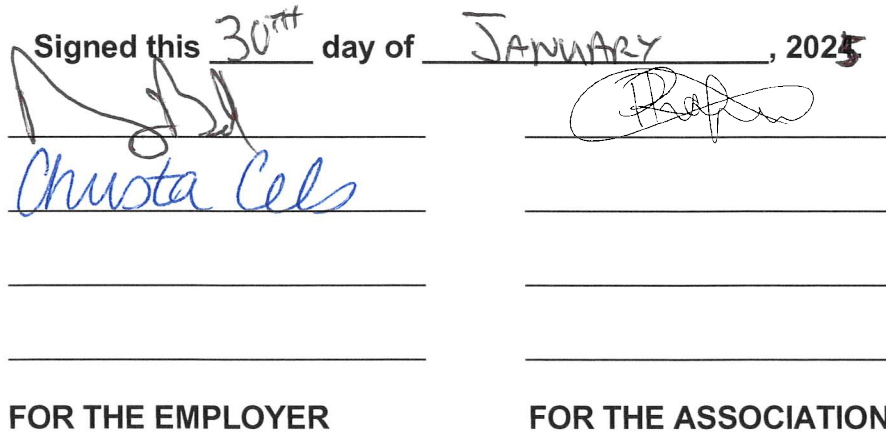 Signed this 30TH day of JANUARY, 2025
Christa Cels
FOR THE EMPLOYER
FOR THE ASSOCIATION